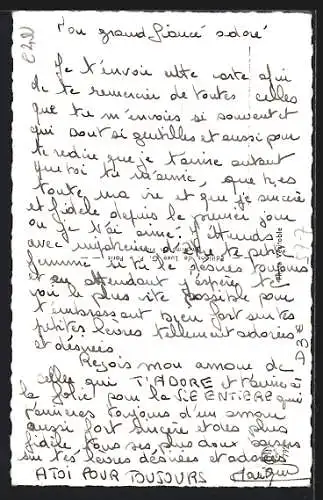 Mon grand fiancé adoré
Je t'envoie cette carte afin
de te remercier de toutes celles
que tu m'envoies si souvent et
qui sont si gentilles et aussi pour
te redire que je t'aime autant
que toi tu m'aimes, que tu es
toute ma vie et que je suis sincère
et fidèle depuis le premier jour
où je t'ai aimé. J'attends
avec impatience d'être ta petite
femme si tu le désires toujours
et en attendant j'espère te
voir le plus vite possible pour
t'embrasser bien fort sur tes
petites lèvres tellement adorées
et désirées
Reçois mon amour de
celle qui T'ADORE et t'aime à
la folie pour la VIE ENTIERE qui
t'aimera toujours d'un amour
aussi fort sincère et des plus
fidèle tous ses plus doux baisers
sur tes lèvres désirées et adorées
A TOI POUR TOUJOURS